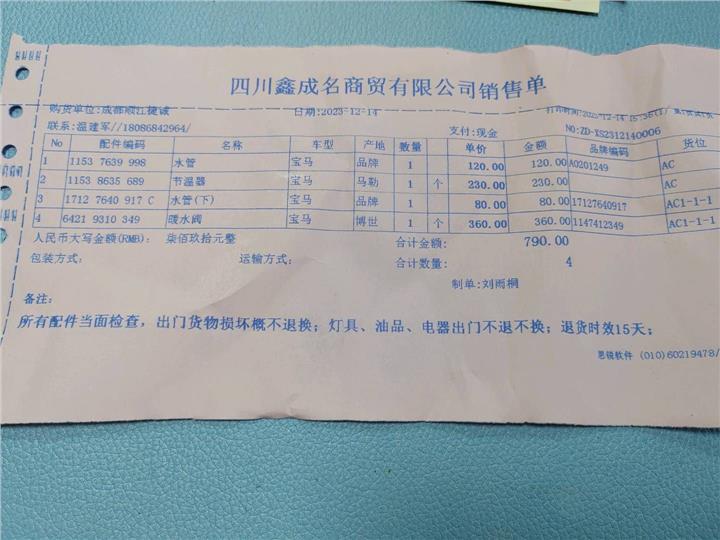 四川鑫成名商贸有限公司销售单
购货单位:成都顺江捷诚 日期:2023-12-14 打印时间:2023-12-14 15:36(1)
联系:温建军//18086842964/ 支付:现金 NO:ZD-XS2312140006
No 配件编码 名称 车型 产地 数量 单价 金额 品牌编码 货位
1 1153 7639 998 水管 宝马 品牌 1 120.00 120.00 A0201249 AC
2 1153 8635 689 节温器 宝马 马勒 1 个 230.00 230.00 AC
3 1712 7640 917 C 水管(下) 宝马 品牌 1 80.00 80.00 17127640917 AC1-1-1
4 6421 9310 349 暖水阀 宝马 博世 1 个 360.00 360.00 1147412349 AC1-1-1
人民币大写金额(RMB): 柒佰玖拾元整 合计金额: 790.00
包装方式: 运输方式: 合计数量: 4
制单:刘雨桐
备注:
所有配件当面检查，出门货物损坏概不退换；灯具、油品、电器出门不退不换；退货时效15天；
思锐软件 (010)60219478/